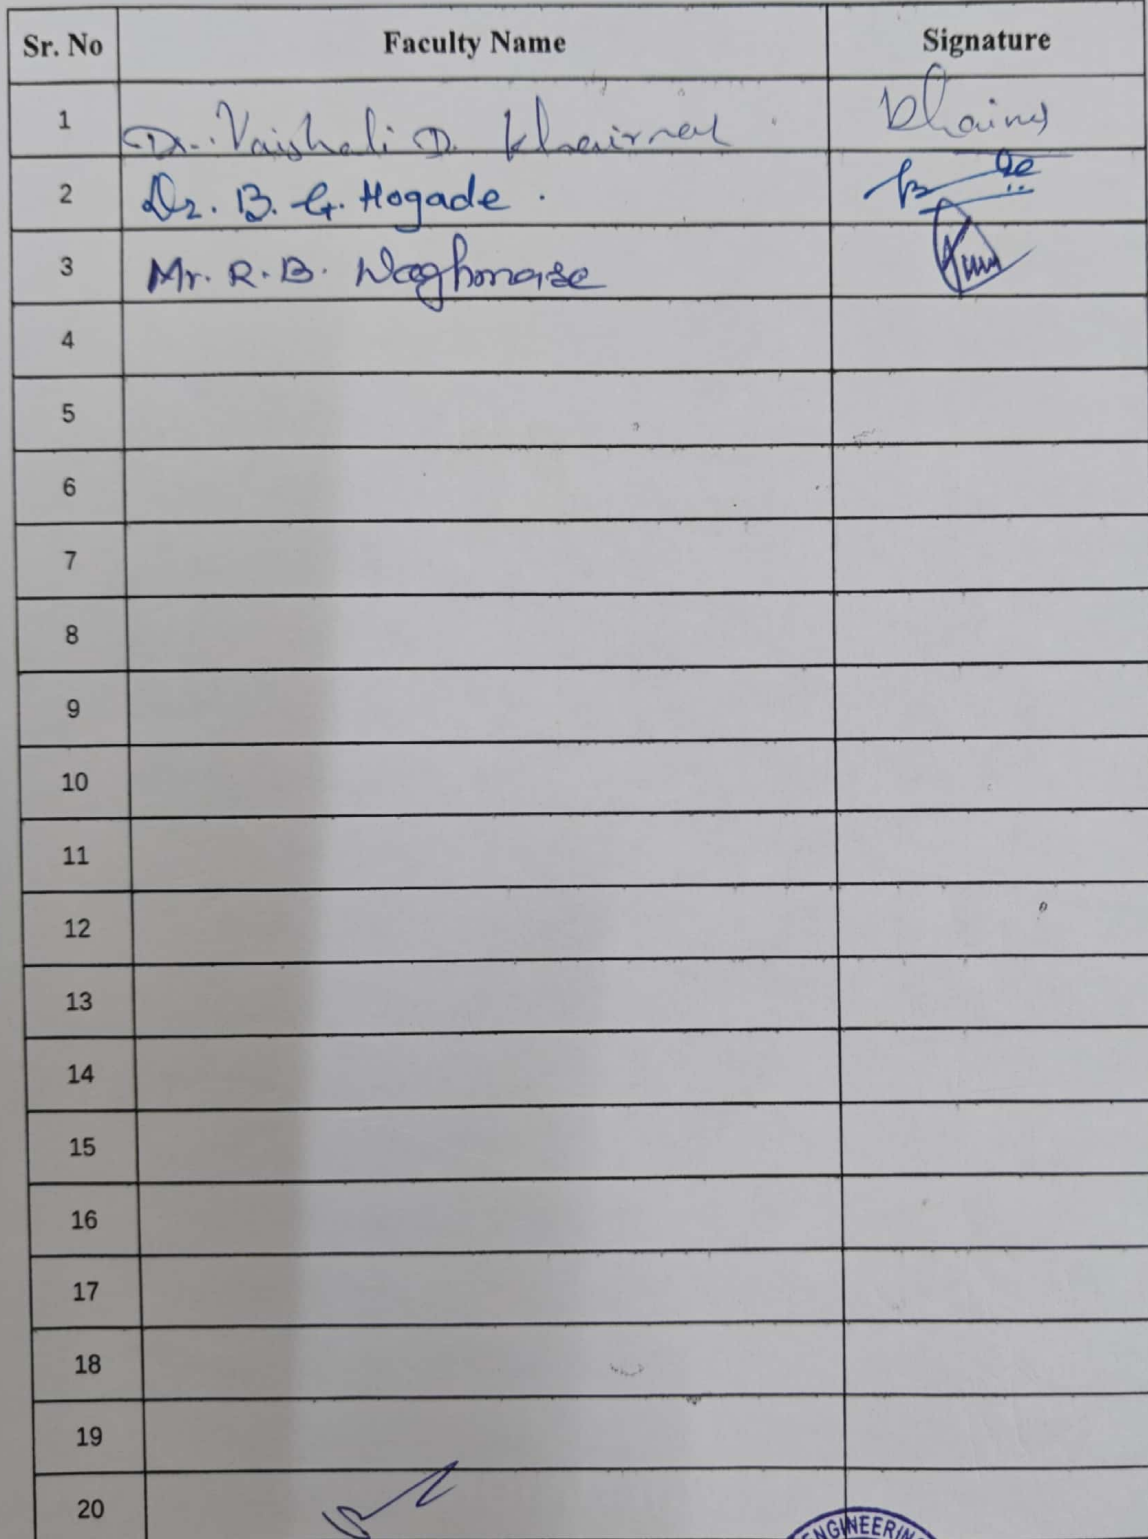 Sr. No Faculty Name Signature
1 Dr. Vaishali D. Khairnar Khairnar
2 Dr. B. G. Hogade.
3 Mr. R. B. Waghmare
4
5
6
7
8
9
10
11
12
13
14
15
16
17
18
19
20
ENGINEERING